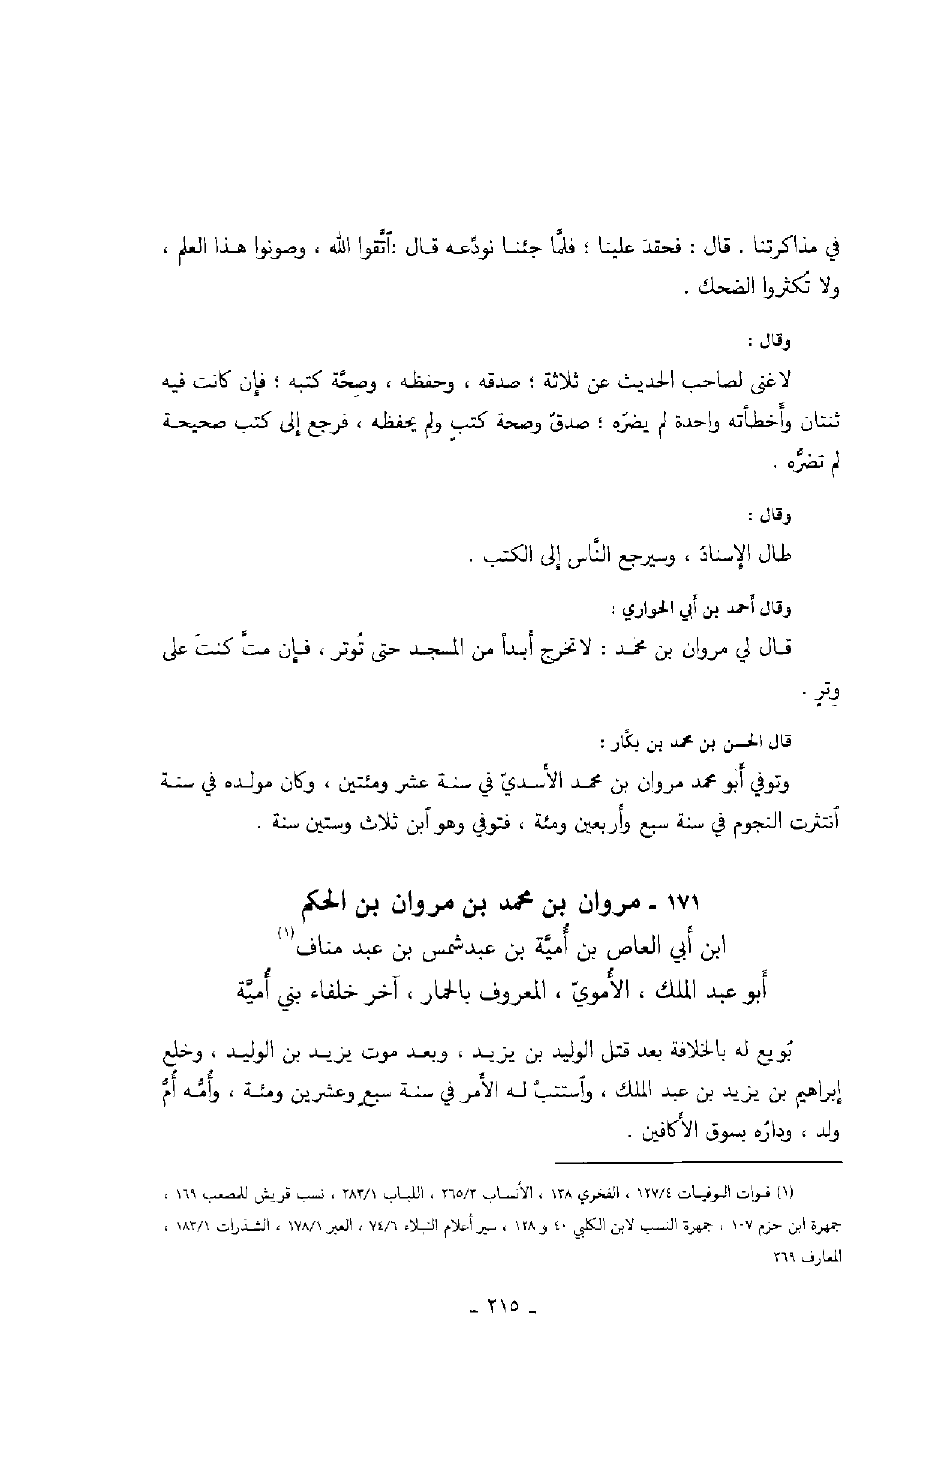 في مذاكرتنا . قال : فحقدَ علينا ؛ فلمَّا جئنا نودِّعه قال :ٱتَّقوا الله ، وصونوا هذا العلم ،
ولا تُكثروا الضحك .
وقال :
لا غنى لصاحب الحديث عن ثلاثة ؛ صدقه ، وحفظه ، وصحَّة كتبه ؛ فإن كانت فيه
ثنتان وأَخطأَته واحدة لم يضرّه ؛ صدقٌ وصحة كتبٍ ولم يحفظه ، فرجع إلى كتب صحيحة
لم تضرَّه .
وقال :
طال الإسنادُ ، وسيرجع النَّاس إلى الكتب .
وقال أحمد بن أبي الحواري :
قال لي مروان بن محمد : لا تخرج أبداً من المسجد حتى تُوتر ، فإن متَّ كنتَ على
وِترٍ .
قال الحسن بن محمد بن بكَّار :
وتوفي أبو محمد مروان بن محمد الأسديّ في سنة عشر ومئتين ، وكان مولده في سنة
ٱنتثرت النجوم في سنة سبع وأربعين ومئة ، فتوفي وهو ٱبن ثلاث وستين سنة .
١٧١ ـ مروان بن محمد بن مروان بن الحكم
ابن أبي العاص بن أُميَّة بن عبدشمس بن عبد مناف(١)
أبو عبد الملك ، الأُمويّ ، المعروف بالحمار ، آخر خلفاء بني أُميَّة
بُويع له بالخلافة بعد قتل الوليد بن يزيد ، وبعد موت يزيد بن الوليد ، وخلع
إبراهيم بن يزيد بن عبد الملك ، وٱستتبَّ له الأمر في سنة سبعٍ وعشرين ومئة ، وأُمُّه أُمُّ
ولد ، ودارُه بسوق الأكافين .
(١) فوات الوفيات ١٢٧/٤ ، الفخري ١٣٨ ، الأنساب ٢٦٥/٣ ، اللباب ٢٨٣/١ ، نسب قريش للمصعب ١٦٩ ،
جمهرة ابن حزم ١٠٧ ، جمهرة النسب لابن الكلبي ٤٠ و ١٢٨ ، سير أعلام النبلاء ٧٤/٦ ، العبر ١٧٨/١ ، الشذرات ١٨٣/١ ،
المعارف ٣٦٩
ـ ٢١٥ ـ